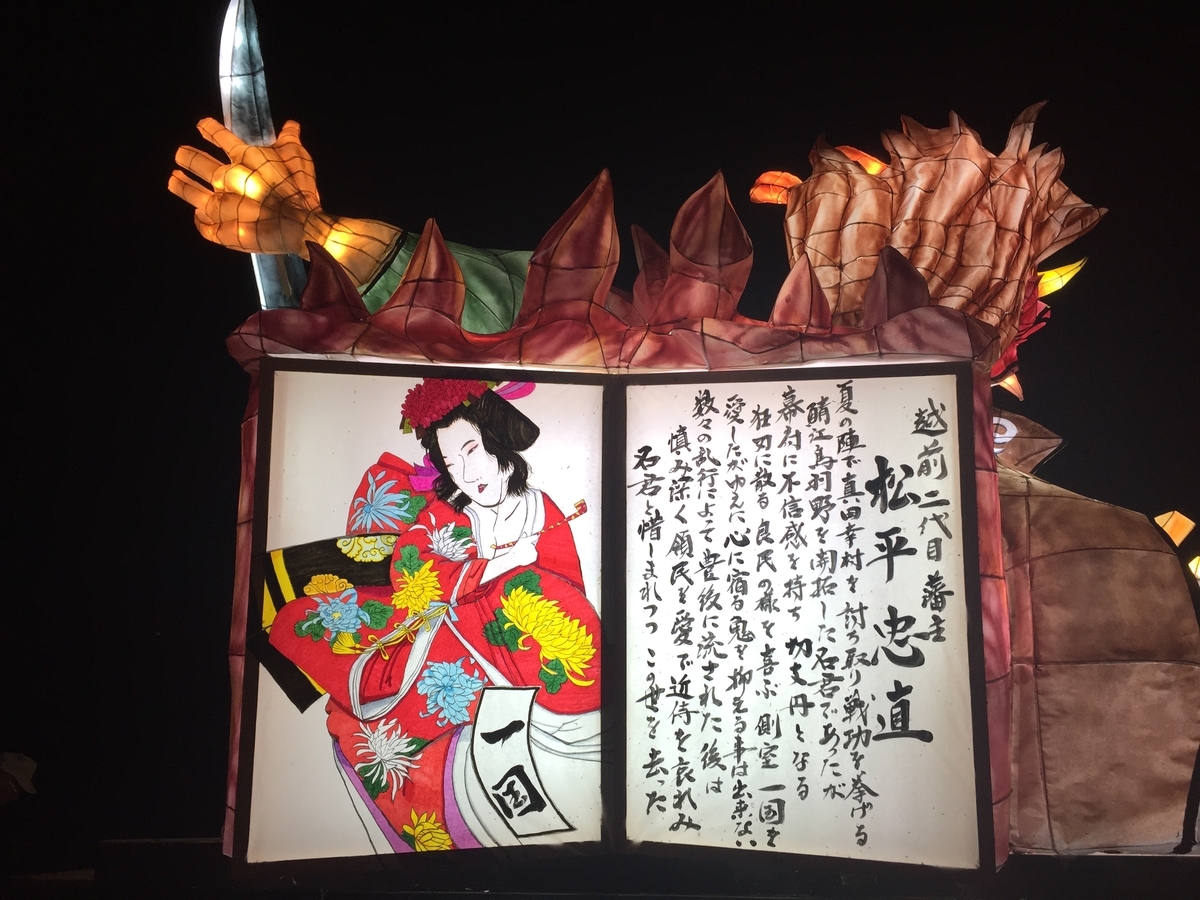 越前二代目藩主
松平忠直
夏の陣で真田幸村を討ち取り戦功を挙げる
鯖江鳥羽野を開拓した名君であったが
幕府に不信感を持ち 切支丹となる
狂刃に散る良民の様を喜ぶ 側室 一国を
愛したがゆえに心に宿る鬼を抑える事は出来ない
数々の乱行によって豊後に流された後は
慎み深く領民を愛で近侍を哀れみ
名君と惜しまれつつ この世を去った
一国